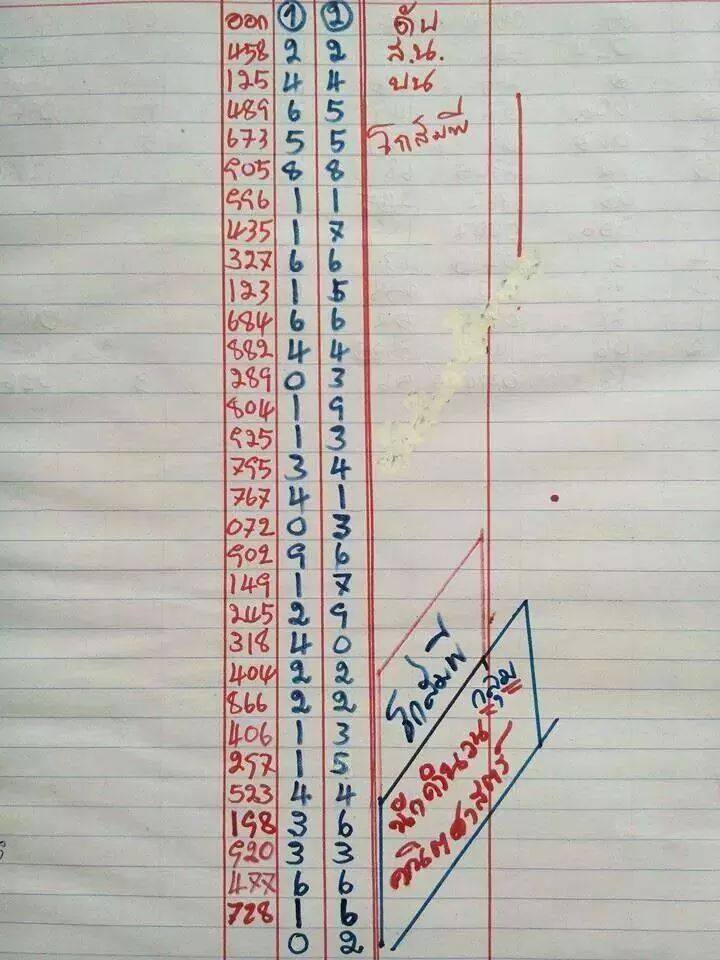 ออก ① ② ดับ
458 2 2 ส.น.
125 4 4 บน
489 6 5
673 5 5 โกสัมพี
905 8 8
996 1 1
435 1 7
327 6 6
123 1 5
684 6 6
882 4 4
289 0 3
804 1 9
925 1 3
795 3 4
767 4 1
072 0 3
902 9 6
149 1 7
245 2 9
318 4 0
404 2 2
866 2 2
406 1 3
297 1 5
523 4 4
198 3 6
920 3 3
477 6 6
728 1 6
0 2
โกสัมพี
กลุ่ม
นักคำนวน
คณิตศาสตร์